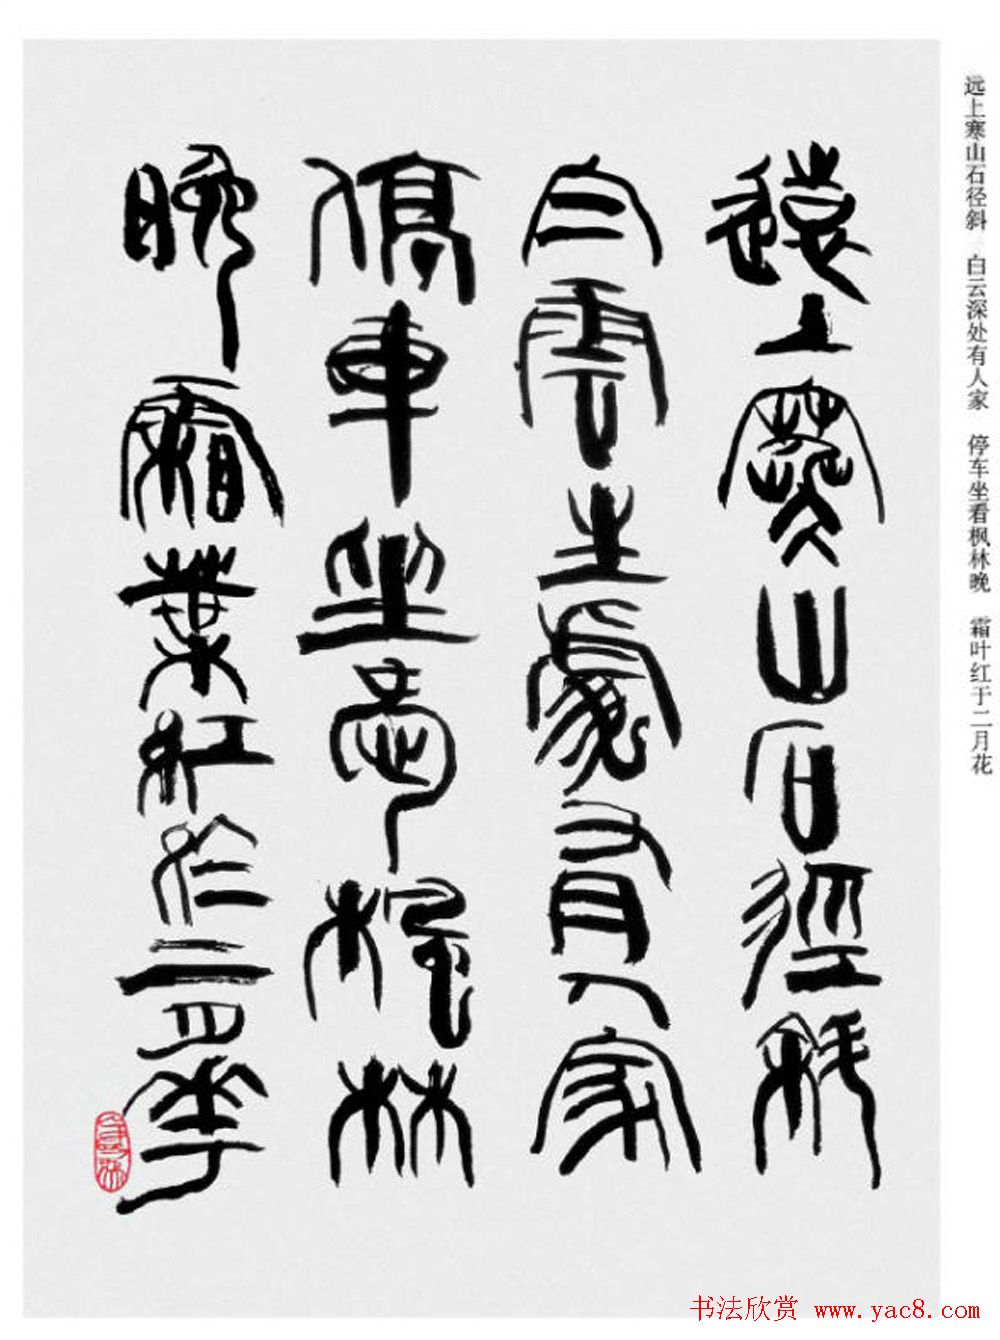 远上寒山石径斜 白云深处有人家 停车坐看枫林晚 霜叶红于二月花
遠上寒山石徑斜
白雲生處有人家
停車坐愛楓林
晚霜葉紅於二月華
书法欣赏 www.yac8.com